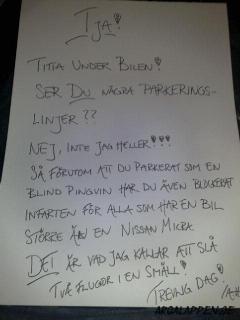 Tja!
TITTA UNDER BILEN!
SER DU NÅGRA PARKERINGS-
LINJER??
NEJ, INTE JAG HELLER!!!
SÅ FÖRUTOM ATT DU PARKERAT SOM EN
BLIND PINGVIN HAR DU ÄVEN BLOCKERAT
INFARTEN FÖR ALLA SOM HAR EN BIL
STÖRRE ÄN EN NISSAN MICRA
DET ÄR VAD JAG KALLAR ATT SLÅ
TVÅ FLUGOR I EN SMÄLL!
TREVLIG DAG!
ARGALAPPEN.SE